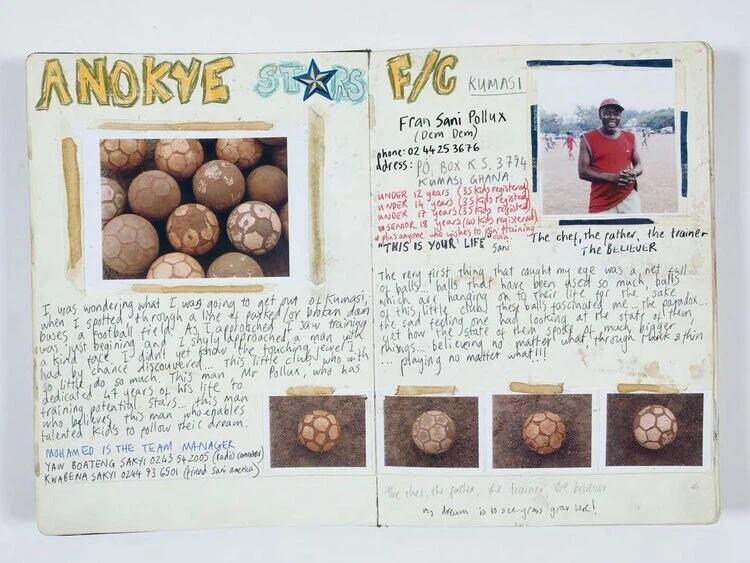 ANOKYE STARS
I was wondering what I was going to get out of Kumasi,
when I spotted through a line of parked/or broten down
buses a football field. As I approached I saw training
was just begining and I shyly approached a man with
a kind face. I didn't yet know the touching level I
had by chance discovered... This little club who with
so little do so much. This man Mr Pollux, who has
dedicated 47 years of his life to
training potential stars... this man
who believes, this man who enables
talented kids to follow their dream.
MOHAMED IS THE TEAM MANAGER
YAW BOATENG SAKYI 0243 542005 (radio)
KWABENA SAKYI 0244 93 6501 (friend Sani america)
F/C KUMASI
Fran Sani Pollux
(Dem Dem)
phone: 02 4425 3676
adress: P.O. BOX K.S. 3794
KUMASI GHANA
UNDER 12 years (35 kids registered)
UNDER 14 years (35 kids registed)
UNDER 17 years (35 kids registed)
SENIOR 18 years (40 kids registered)
+ plus anyone who wishes to join training
"THIS IS YOUR LIFE" Sani
The chef, the father, the trainer
The BELIEVER
The very first thing that caught my eye was a net full
of balls... balls that have been used so much, balls
which are hanging on to their life for the sake
of this little club. These balls fascinated me... the paradox...
the sad feeling one had looking at the state of them
yet how the state of them spoke of much bigger
things... believeing no matter what, through thick & thin
... playing no matter what!!!
the chef, the father, the trainer, the believer
my dream is to see grass grow here!